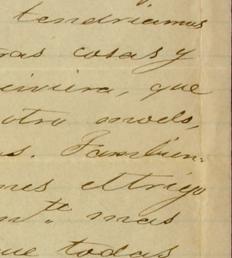 tendriamos
ras cosas y
iviera, que
otro modo,
s. Tambien
mes el trigo
mas
ue todas